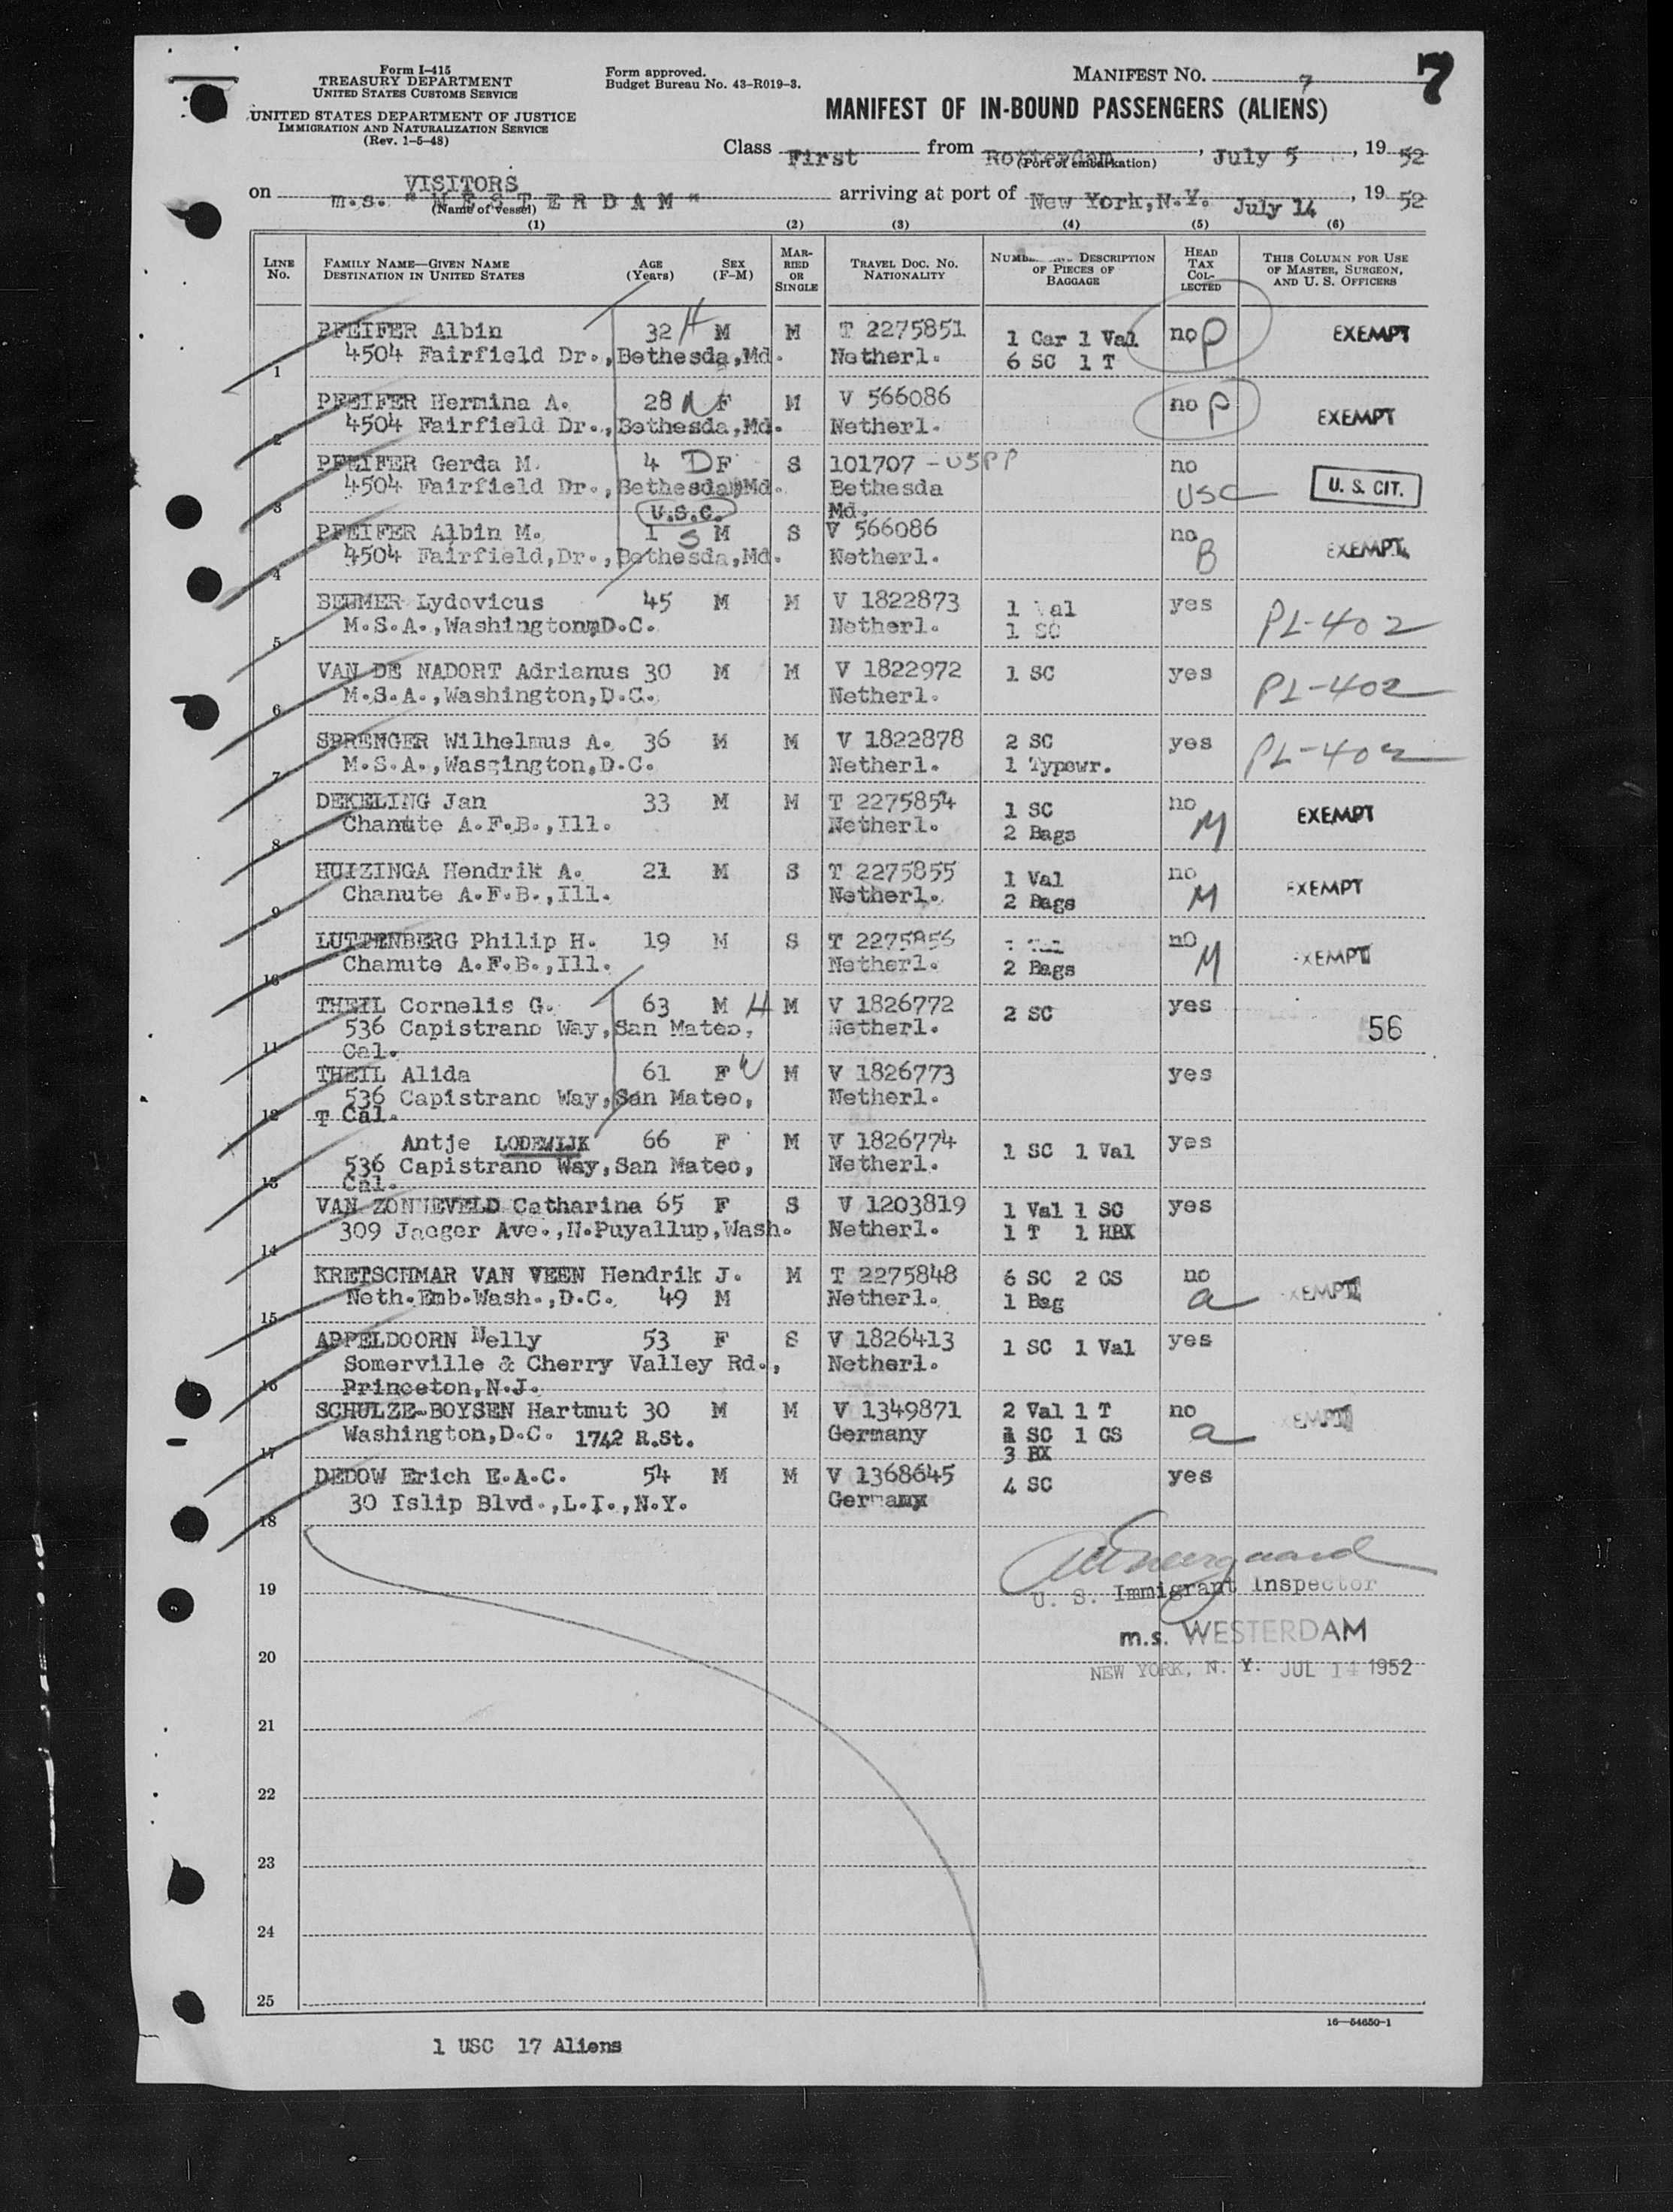 Form I-415
TREASURY DEPARTMENT
UNITED STATES CUSTOMS SERVICE
UNITED STATES DEPARTMENT OF JUSTICE
IMMIGRATION AND NATURALIZATION SERVICE
(Rev. 1-5-48)
Form approved.
Budget Bureau No. 43-R019-3.
MANIFEST NO. 7
7
MANIFEST OF IN-BOUND PASSENGERS (ALIENS)
Class First from Rotterdam, July 5, 1952
(Port of embarkation)
VISITORS
on m.s. "WESTERDAM" arriving at port of New York, N.Y. July 14, 1952
(Name of vessel)
(1) (2) (3) (4) (5) (6)
LINE No. FAMILY NAME—GIVEN NAME DESTINATION IN UNITED STATES AGE (Years) SEX (F-M) MARRIED OR SINGLE TRAVEL DOC. NO. NATIONALITY DESCRIPTION OF PIECES OF BAGGAGE HEAD TAX COLLECTED THIS COLUMN FOR USE OF MASTER, SURGEON, AND U. S. OFFICERS
PFEIFER Albin 32 H M M T 2275851 1 Car 1 Val no P EXEMPT
1 4504 Fairfield Dr.,Bethesda,Md. Netherl. 6 SC 1 T
PFEIFER Hermina A. 28 F M V 566086 no P EXEMPT
2 4504 Fairfield Dr.,Bethesda,Md. Netherl.
PFEIFER Gerda M. 4 D F S 101707 - USPP no
3 4504 Fairfield Dr.,Bethesda,Md. Bethesda USC U. S. CIT.
U.S.C. Md.
PFEIFER Albin M. 1 S M S V 566086 no EXEMPT
4 4504 Fairfield,Dr.,Bethesda,Md. Netherl. B
BEUMER Lydovicus 45 M M V 1822873 1 Val yes
5 M.S.A.,Washington,D.C. Netherl. 1 SC PL-402
VAN DE NADORT Adrianus 30 M M V 1822972 1 SC yes
6 M.S.A.,Washington,D.C. Netherl. PL-402
SPRENGER Wilhelmus A. 36 M M V 1822878 2 SC yes
7 M.S.A.,Wassington,D.C. Netherl. 1 Typewr. PL-402
DEKELING Jan 33 M M T 2275854 1 SC no EXEMPT
8 Chanute A.F.B.,Ill. Netherl. 2 Bags M
HUIZINGA Hendrik A. 21 M S T 2275855 1 Val no EXEMPT
9 Chanute A.F.B.,Ill. Netherl. 2 Bags M
LUTTENBERG Philip H. 19 M S T 2275856 no EXEMPT
10 Chanute A.F.B.,Ill. Netherl. 2 Bags M
THEIL Cornelis G. 63 M H M V 1826772 2 SC yes
11 536 Capistrano Way,San Mateo, Netherl. 56
Cal.
THEIL Alida 61 F W M V 1826773 yes
12 536 Capistrano Way,San Mateo, Netherl.
T Cal.
Antje LODEWIJK 66 F M V 1826774 1 SC 1 Val yes
13 536 Capistrano Way,San Mateo, Netherl.
Cal.
VAN ZONNEVELD Catharina 65 F S V 1203819 1 Val 1 SC yes
14 309 Jaeger Ave.,N.Puyallup,Wash. Netherl. 1 T 1 HBX
KRETSCHMAR VAN VEEN Hendrik J. M T 2275848 6 SC 2 CS no EXEMPT
15 Neth.Emb.Wash.,D.C. 49 M Netherl. 1 Bag a
APPELDOORN Nelly 53 F S V 1826413 1 SC 1 Val yes
16 Somerville & Cherry Valley Rd., Netherl.
Princeton,N.J.
SCHULZE-BOYSEN Hartmut 30 M M V 1349871 2 Val 1 T no EXEMPT
17 Washington,D.C. 1742 R.St. Germany 1 SC 1 CS a
3 BX
DEDOW Erich E.A.C. 54 M M V 1368645 4 SC yes
18 30 Islip Blvd.,L.I.,N.Y. Germany
19
U. S. Immigrant Inspector
m.s. WESTERDAM
20
NEW YORK, N. Y. JUL 14 1952
21
22
23
24
25
16—54650-1
1 USC 17 Aliens